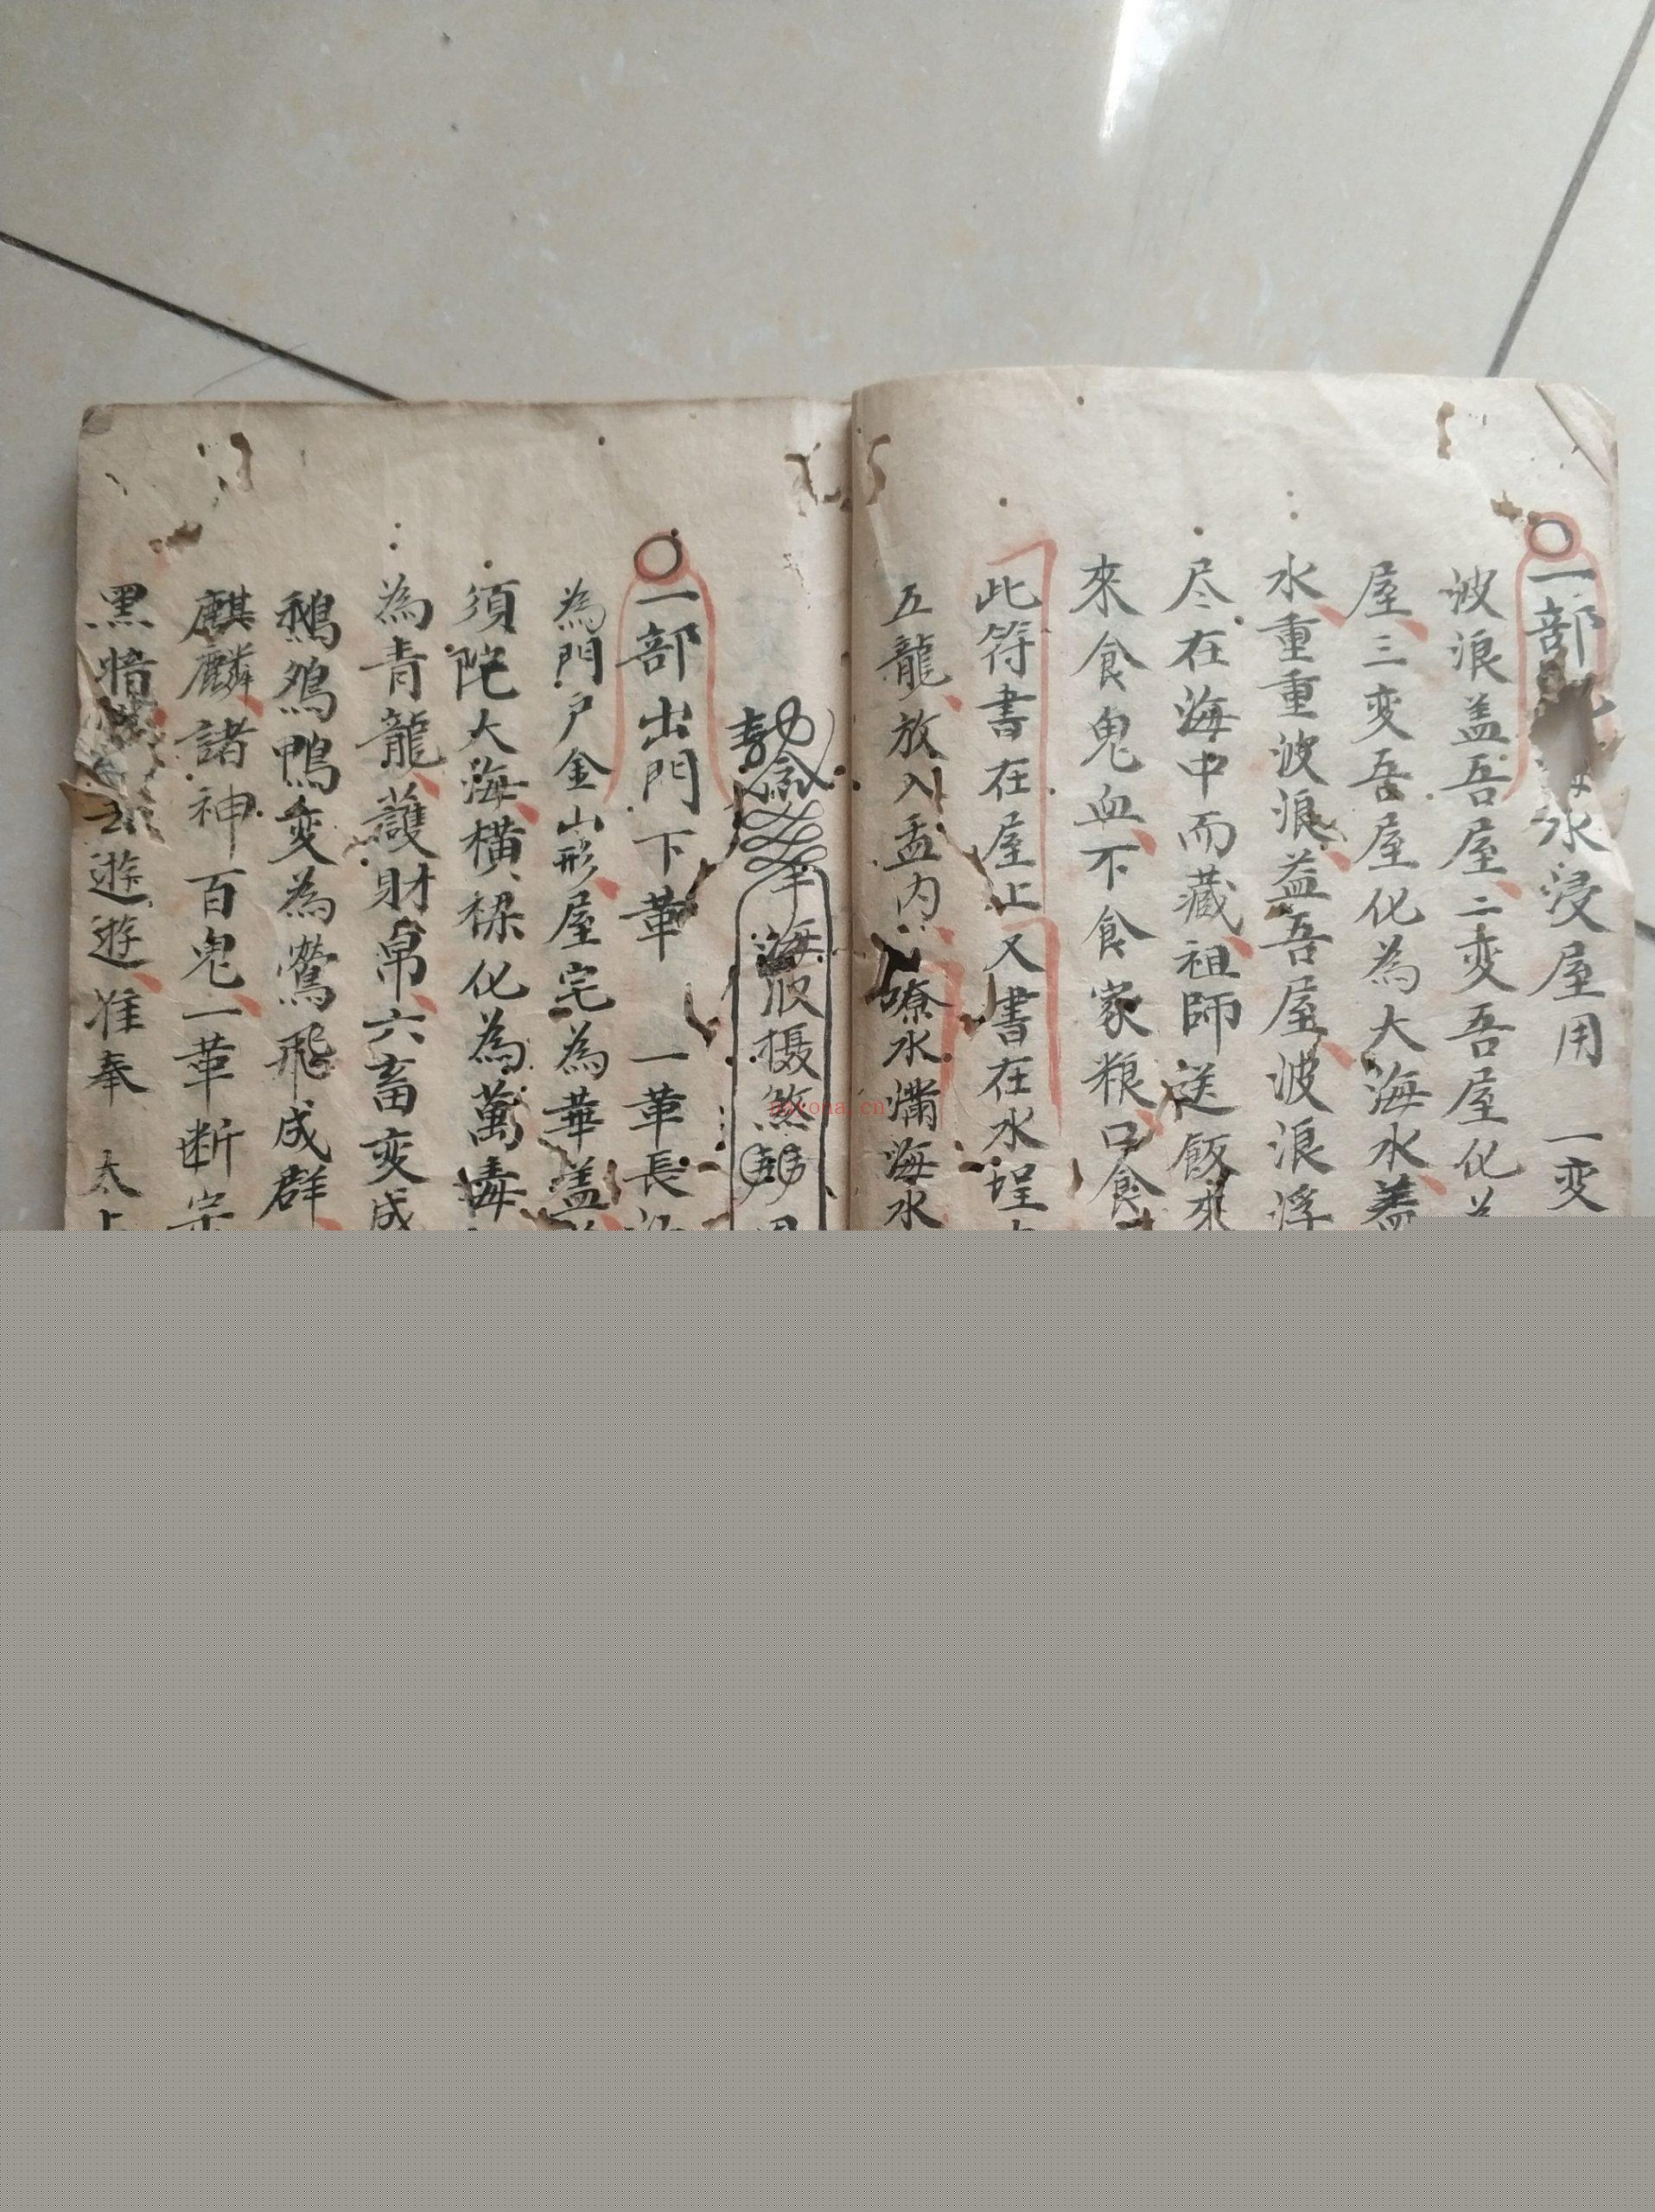 一部海水浸屋用　一变
波浪盖吾屋二变吾屋化
屋三变吾屋化為大海水蓋
水重重波浪益吾屋波浪浮
尽在海中而藏祖師送飯來
來食鬼血不食家粮口食
此符書在屋上又書在水埕
五龍放入盂内嘹水灟海水
勅令　海收摄煞
一部出門下華　一華長
為門戶金山形屋宅為華盖
須陀大海橫樑化為萬毒
為青龍護財帛六畜变成
鵝鴨变為鶯飛成群
麒麟諸神百鬼一華断
黑暗遊遊准奉　太上